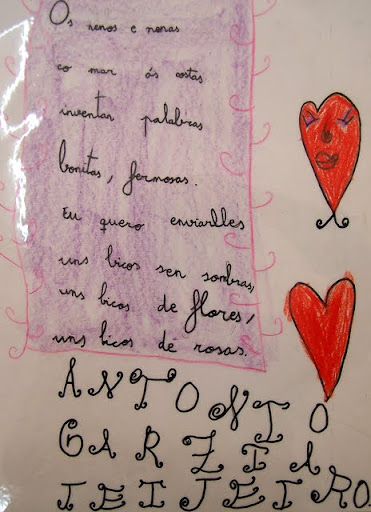 Os nenos e nenas
co mar ás costas
inventan palabras
bonitas, fermosas.
Eu quero enviarlles
uns bicos sen sombras,
uns bicos de flores,
uns bicos de rosas.
ANTONIO
GARZIA
TEIJEIRO